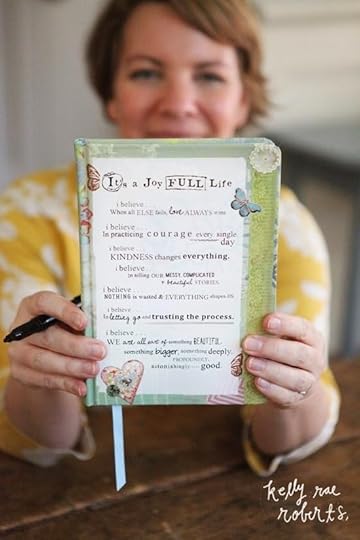 It's a Joy FULL Life
i believe...
When all ELSE fails, love ALWAYS wins
i believe...
In practicing courage every single
day
i believe...
KINDNESS changes everything.
i believe...
in telling OUR MESSY, COMPLICATED
& beautiful STORIES.
i believe...
NOTHING is wasted & EVERYTHING shapes US
i believe...
In letting go and trusting the process.
i believe...
WE are all are of something BEAUTIFUL.
something bigger, something deeply,
PROFOUNDLY,
astonishingly good.
kelly rae
roberts.